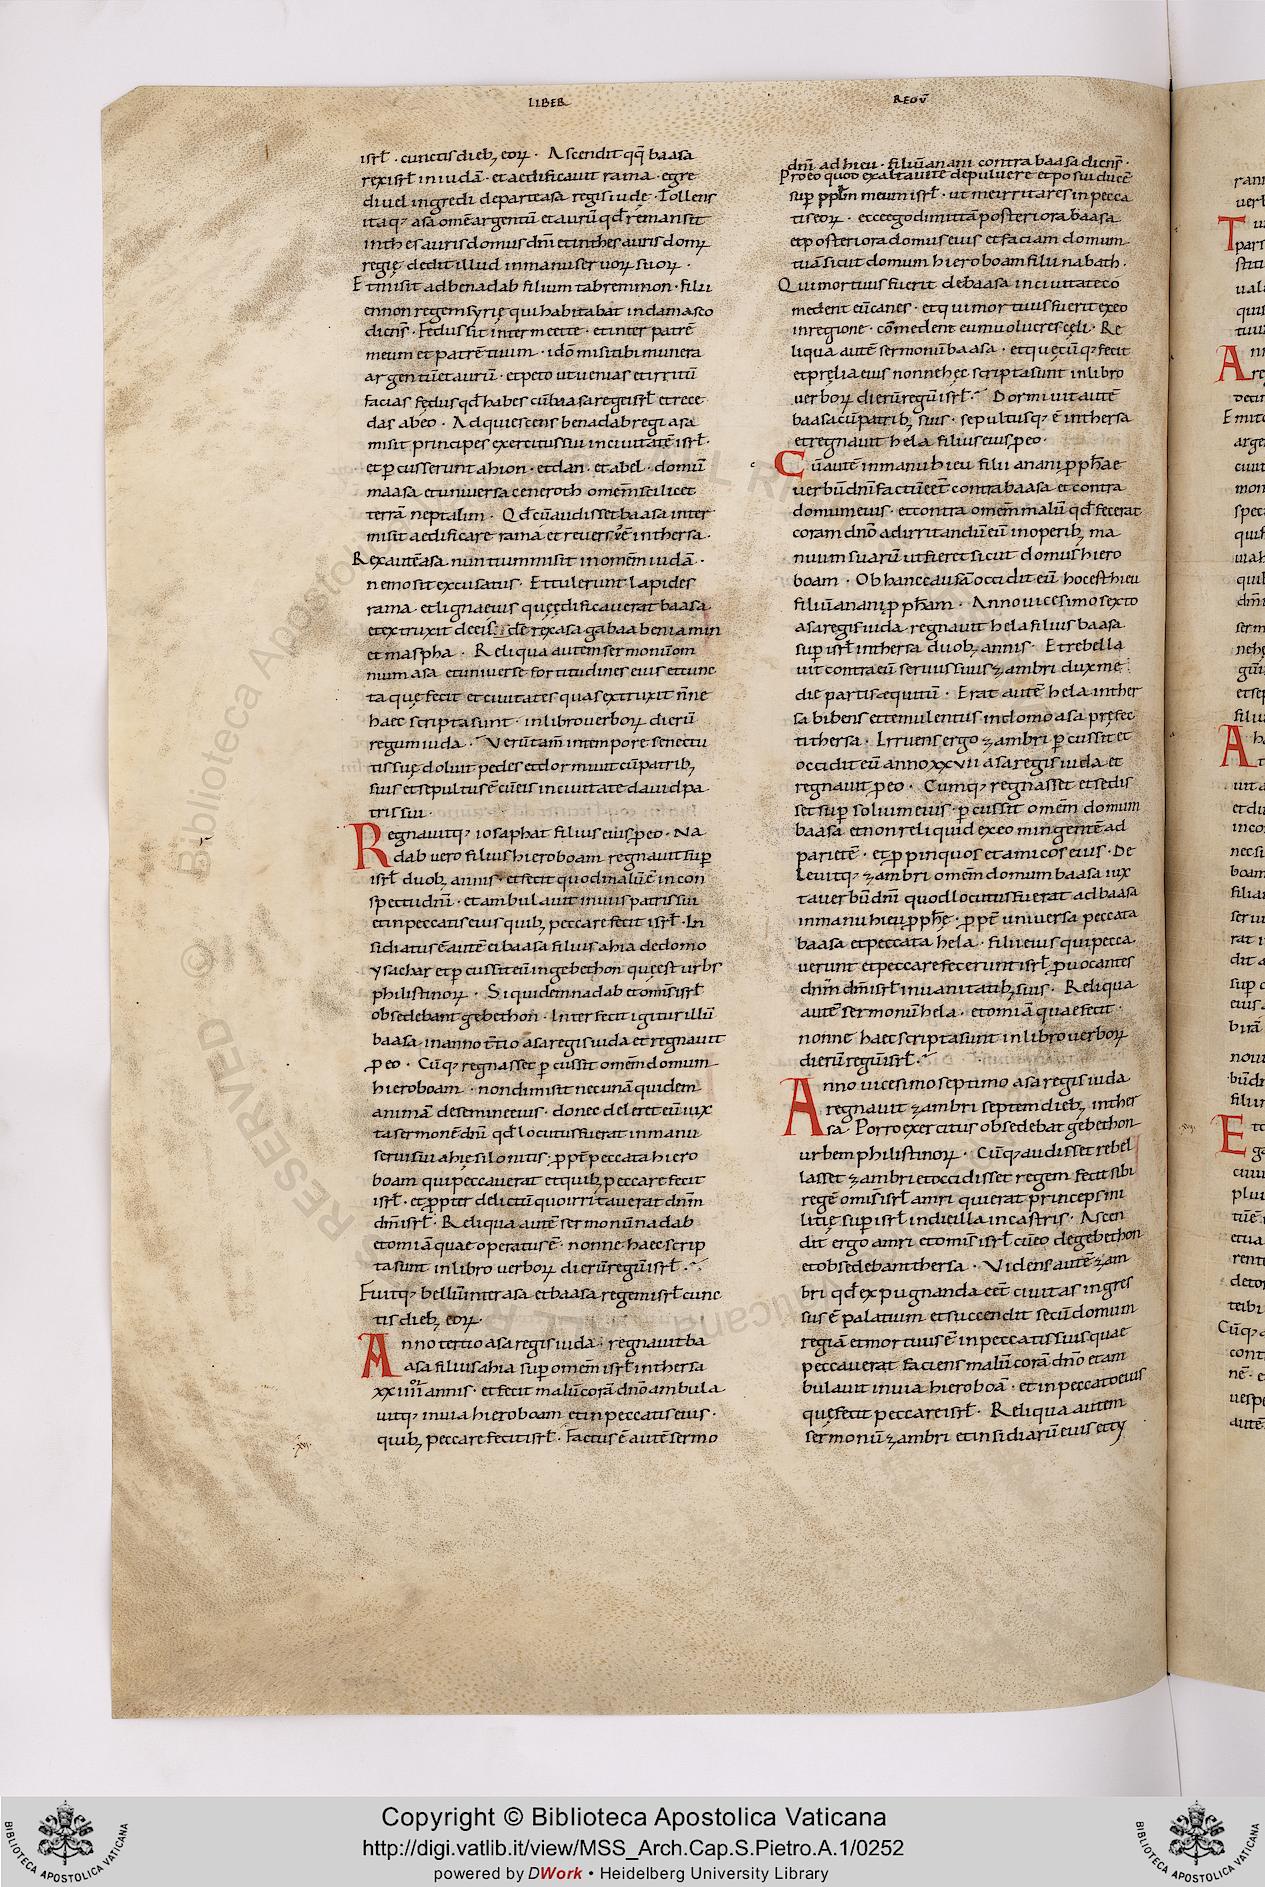 LIBER
REGŪ
isrł · cunctis dieb; eoꝝ · Ascendit qq̄ baasa
rex isrł in iudā · et aedificauit rama · egre
di uel ingredi de parte asa regis iudę · Tollens
itaq; asa omē argentū et aurū qđ remansit
in thesauris domus dn̄i et in thesauris domꝝ
regię dedit illud in manu seruoꝝ suoꝝ ·
Et misit ad benadab filium tabremmon · filii
ennon regem syrię qui habitabat in damasco
dicens · Fedus sit inter me et te · et inter patrē
meum et patrē tuum · idō misi tibi munera
argentū et aurū · et peto ut uenias et irritū
facias fędus qđ habes cū baasa rege isrł et rece
dat a beo · Adquiescens benadab regi asa
misit principes exercitus sui in ciuitatē isrł ·
et ꝑcusserunt ahion · et dan · et abel · domū
maasa et uniuersa ceneroth omem̄ scilicet
terrā neptalim · Qđ cū audisset baasa inter
misit aedificare ramā et reuersꝰ ē in thersa ·
Rex autē asa nuntium misit in omem̄ iudā ·
nemo sit excusatus · Et tulerunt lapides
rama et ligna eius quę ędificauerat baasa
et extruxit de eis rex asa gabaa beniamin
et maspha · Reliqua autem sermonū om
nium asa et uniuerse fortitudines eius et cunc
ta quę fecit et ciuitates quas extruxit n̄ne
haec scripta sunt · in libro uerboꝝ dierū
regum iuda · Verūtam̄ in tempore senectu
tis suę doluit pedes et dormiuit cū patrib;
suis et sepultus ē cū eis in ciuitate dauid pa
tris sui ·
Regnauitq; iosaphat filius eius ꝓ eo · Na
dab uero filius hieroboam regnauit suꝑ
isrł duob; annis · et fecit quod malū ē in con
spectu dn̄i · et ambulauit in uiis patris sui
et in peccatis eius quib; peccare fecit isrł · In
sidiatus ē autē ei baasa filius ahia de domo
ysachar et ꝑcussit eū in gebethon quę est urbs
philistinoꝝ · Siquidem nadab et omīs isrł
obsedebant gebethon · Interfecit igitur illū
baasa in anno t̄tio asa regis iuda et regnauit
ꝓ eo · Cūq; regnasset ꝑcussit omem̄ domum
hieroboam · non dimisit nec unā quidem
animā de semine eius · donec deleret eū iux
ta sermonē dn̄i qđ locutus fuerat in manu
serui sui ahię silonitis · ꝓpt̄ peccata hiero
boam qui peccauerat et quib; peccare fecit
isrł · et ꝓpter delictū quo irritauerat dn̄m
dm̄ isrł · Reliqua autē sermonū nadab
et omīa quae operatus ē · nonne haec scrip
ta sunt in libro uerboꝝ dierū regū isrł ·
Fuitq; bellū inter asa et baasa regem isrł cunc
tis dieb; eoꝝ ·
Anno tertio asa regis iuda · regnauit ba
asa filius ahia suꝑ omem̄ isrł in thersa
xxiiii annis · et fecit malū corā dn̄o ambula
uitq; in uia hieroboam et in peccatis eius ·
quib; peccare fecit isrł · Factus ē autē sermo
dn̄i ad hieu · filiū anani contra baasa dicens ·
Pro eo quod exaltaui te de puluere et posui ducē
suꝑ pplm̄ meum isrł · ut me irritares in pecca
tis eoꝝ · ecce ego dimittā posteriora baasa
et posteriora domus eius et faciam domum
tuā sicut domum hieroboam filii nabath ·
Qui mortuus fuerit de baasa in ciuitate co
medent eū canes · et qui mortuus fuerit ex eo
in regione · cōmedent eum uolucres cęli · Re
liqua autē sermonū baasa · et quęcūq; fecit
et pręlia eius nonne hęc scripta sunt in libro
uerboꝝ dierū regū isrł · Dormiuit autē
baasa cū patrib; suis · sepultusq; ē in thersa
et regnauit hela filius eius ꝓ eo ·
Cū autē in manu hieu filii anani ꝓphae
uerbū dn̄i factū eēt contra baasa et contra
domum eius · et contra omem̄ malū qđ fecerat
coram dn̄o ad irritandū eū in operib; ma
nuum suarū ut fieret sicut domus hiero
boam · Ob hanc causā occidit eū hoc est hieu
filiū anani ꝓpham · Anno uicesimo sexto
asa regis iuda · regnauit hela filius baasa
suꝑ isrł in thersa duob; annis · Et rebella
uit contra eū seruus suus zambri dux me
die partis æquitū · Erat autē hela in ther
sa bibens et temulentus in domo asa pręfec
ti thersa · Irruens ergo zambri ꝑcussit et
occidit eū anno xxvii asa regis iuda et
regnauit ꝓ eo · Cumq; regnasset et sedis
set suꝑ solium eius · ꝑcussit omem̄ domum
baasa et non reliquid ex eo mingentē ad
parietē · et ꝓpinquos et amicos eius · De
leuitq; zambri omem̄ domum baasa iux
ta uerbū dn̄i quod locutus fuerat ad baasa
in manu hieu ꝓphę · ꝓpt̄ uniuersa peccata
baasa et peccata hela · filii eius qui pecca
uerunt et peccare fecerunt isrł ꝓuocantes
dn̄m dm̄ isrł in uanitatib; suis · Reliqua
autē sermonū hela · et omīa quae fecit ·
nonne haec scripta sunt in libro uerboꝝ
dierū regū isrł ·
Anno uicesimo septimo asa regis iuda
regnauit zambri septem dieb; in ther
sa · Porro exercitus obsedebat gebethon
urbem philistinoꝝ · Cūq; audisset rebel
lasset zambri et occidisset regem fecit sibi
regē omīs isrł amri qui erat princeps mi
litię suꝑ isrł in die illa in castris · Ascen
dit ergo amri et omīs isrł cū eo de gebethon
et obsedebant thersa · Videns autē zam
bri qđ expugnanda eēt ciuitas ingres
sus ē palatium et succendit se cū domum
regiā et mortuus ē in peccatis suis quae
peccauerat faciens malū corā dn̄o et am
bulauit in uia hieroboā · et in peccato eius
quę fecit peccare isrł · Reliqua autem
sermonū zambri et insidiarū eius et ty
Copyright © Biblioteca Apostolica Vaticana
http://digi.vatlib.it/view/MSS_Arch.Cap.S.Pietro.A.1/0252
powered by DWork • Heidelberg University Library